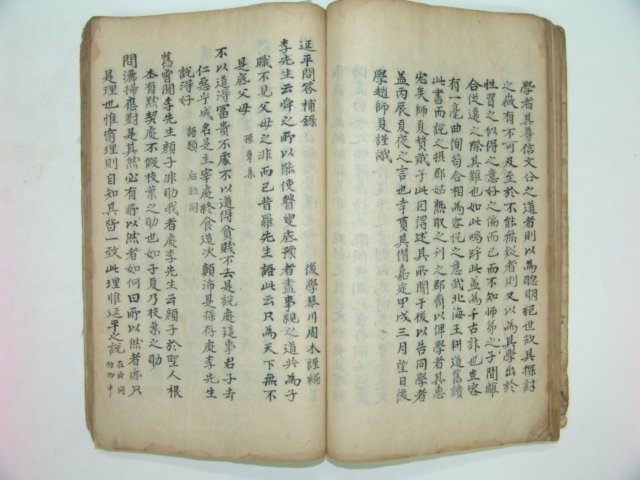 學者其尊信文公之道者則以為聰明絕世故其探討
之歲有不可及至於不能無疑者則又以為其學出於
性習之似得之意好之偏而已而不知師弟之子間離
合從違之際其難也如此嗚呼此盖為千古計也豈容
有一毫曲間苟合相為容悅之意哉北海王耕道舊讀
此書而說之攝郡姑熟取之刊之郡齋以俾學者其惠
宏矣師夏贅識于此因得述其所聞于後以告同學者
盖丙辰夏夜之言也幸質其僭嘉定甲戌三月望日後
學趙師夏謹識
延平問答補錄
後學琴川周木謹編
李先生云舜之所以能使瞽叟底豫者盡事親之道共為子
職不見父母之非而已昔羅先生語此云只為天下無不
是底父母 孫章集
不以道得富貴不處不以道得貧賤不去是說處這事君子去
仁惡乎成名是主宰處終食造次顚沛是操存處李先生
說得好 語類 后說同
舊曾聞李先生說顔子非助我者處李先生云顔子於聖人根
本有黙契處不假枝葉之助也如子夏乃枝葉之助
問灑掃應對是其然必有所以然者如何曰所以然者亦只
是理也惟窮理則自知其皆一致此理惟延平之說